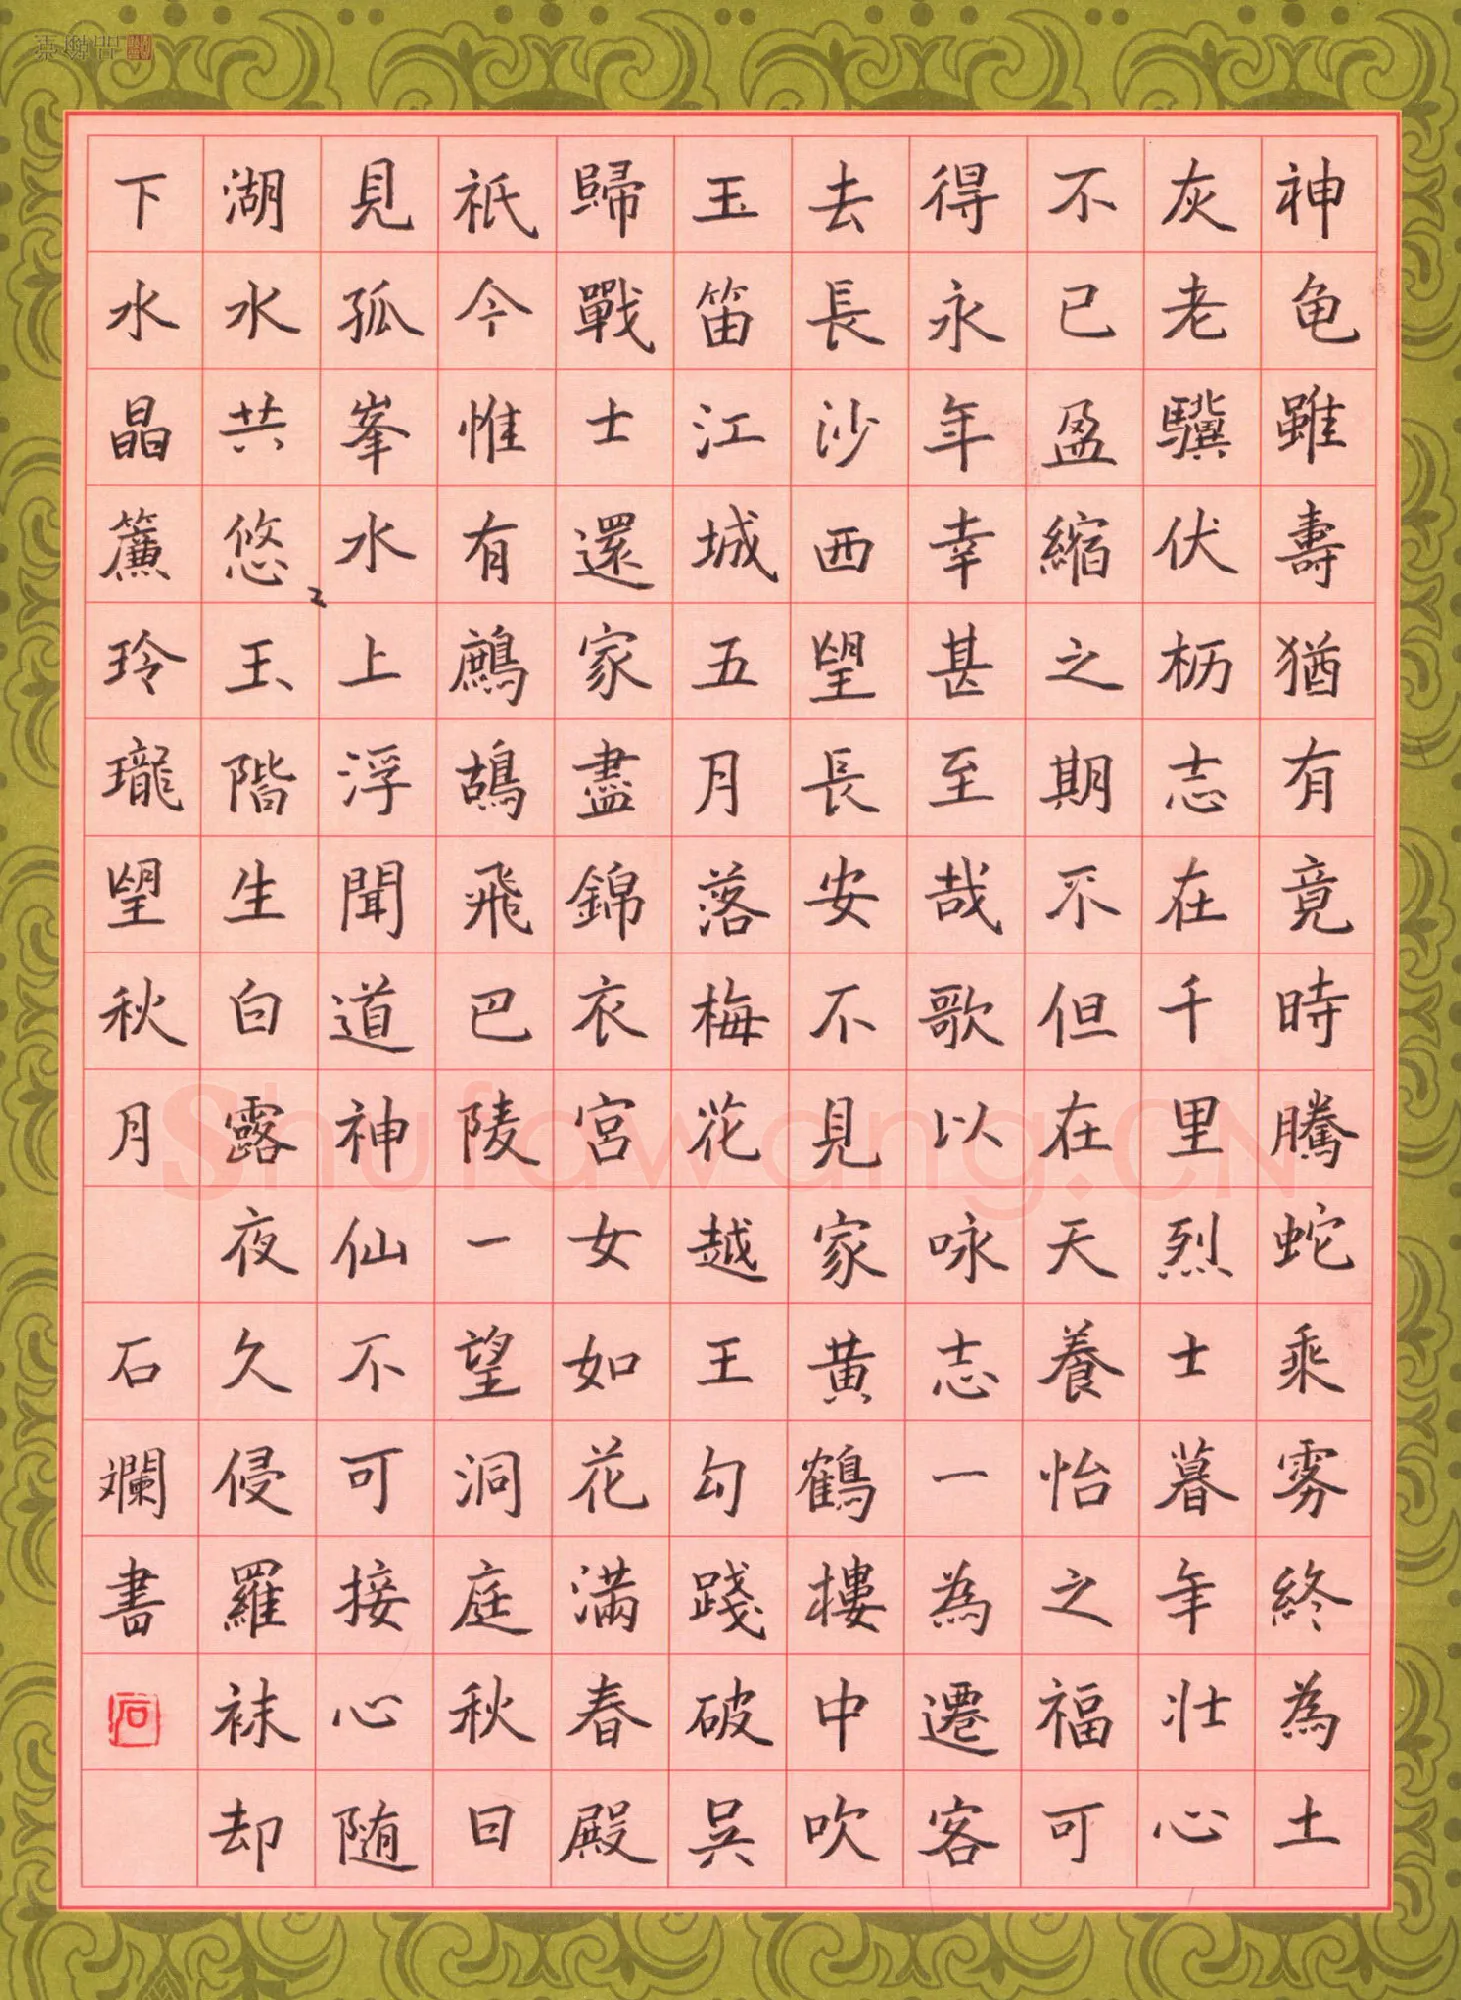 神龟雖壽猶有竟時騰蛇乘雾終為土
灰老驥伏枥志在千里烈士暮年壯心
不已盈縮之期不但在天養怡之福可
得永年幸甚至哉歌以咏志一為遷客
去長沙西望長安不見家黄鶴樓中吹
玉笛江城五月落梅花越王勾踐破吳
歸戰士還家盡錦衣宮女如花滿春殿
祇今惟有鷓鴣飛巴陵一望洞庭秋日
見孤峯水上浮聞道神仙不可接心随
湖水共悠〻玉階生白露夜久侵羅袜却
下水晶簾玲瓏望秋月 石斕書
石
Shufawang.CN